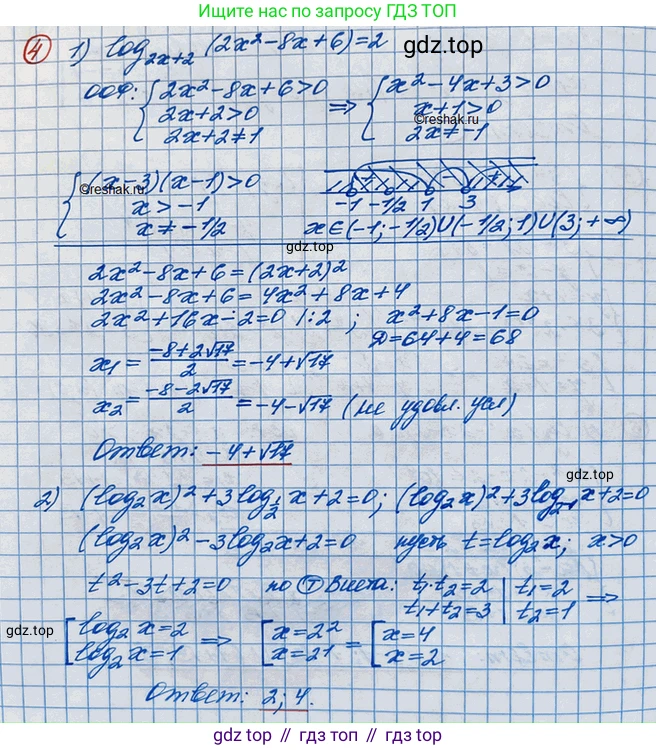 Ищите нас по запросу ГДЗ ТОП
④ 1) log₂ₓ₊₂ (2x²-8x+6)=2
gdz.top
ООФ: { 2x²-8x+6>0 ⇒ { x²-4x+3>0
2x+2>0 x+1>0
©reshak.ru
2x+2≠1 2x≠-1
{ (x-3)(x-1)>0
©reshak.ru
x>-1 -1 -1/2 1 3
x≠-1/2 x∈(-1;-1/2)∪(-1/2;1)∪(3;+∞)
gdz.top
2x²-8x+6=(2x+2)²
2x²-8x+6=4x²+8x+4
2x²+16x-2=0 |:2 ; x²+8x-1=0
Д=64+4=68
x₁ = (-8+2√17)/2 = -4+√17
x₂ = (-8-2√17)/2 = -4-√17 (не удовл. усл)
Ответ: -4+√17
gdz.top
2) (log₂x)²+3log_{1/2} x+2=0; (log₂x)²+3log_{2⁻¹} x+2=0
(log₂x)²-3log₂x+2=0 пусть t=log₂x; x>0
t²-3t+2=0 по Ⓣ Виета: t₁·t₂=2 | t₁=2 ⇒
t₁+t₂=3 | t₂=1
gdz.top
[ log₂x=2 ⇒ [ x=2² = [ x=4
log₂x=1 x=2¹ x=2
Ответ: 2; 4.
gdz.top gdz.top